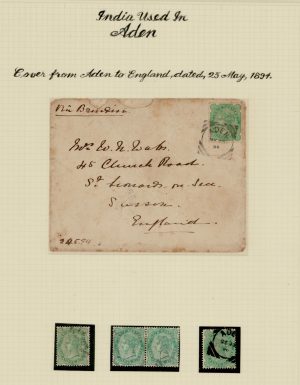 India Used In
Aden
Cover from Aden to England, dated, 25 May, 1894.
Via Brindisi
ADEN
Mrs W. N.
45 Church Road.
St Leonards on Sea
Sussex
England
ADEN